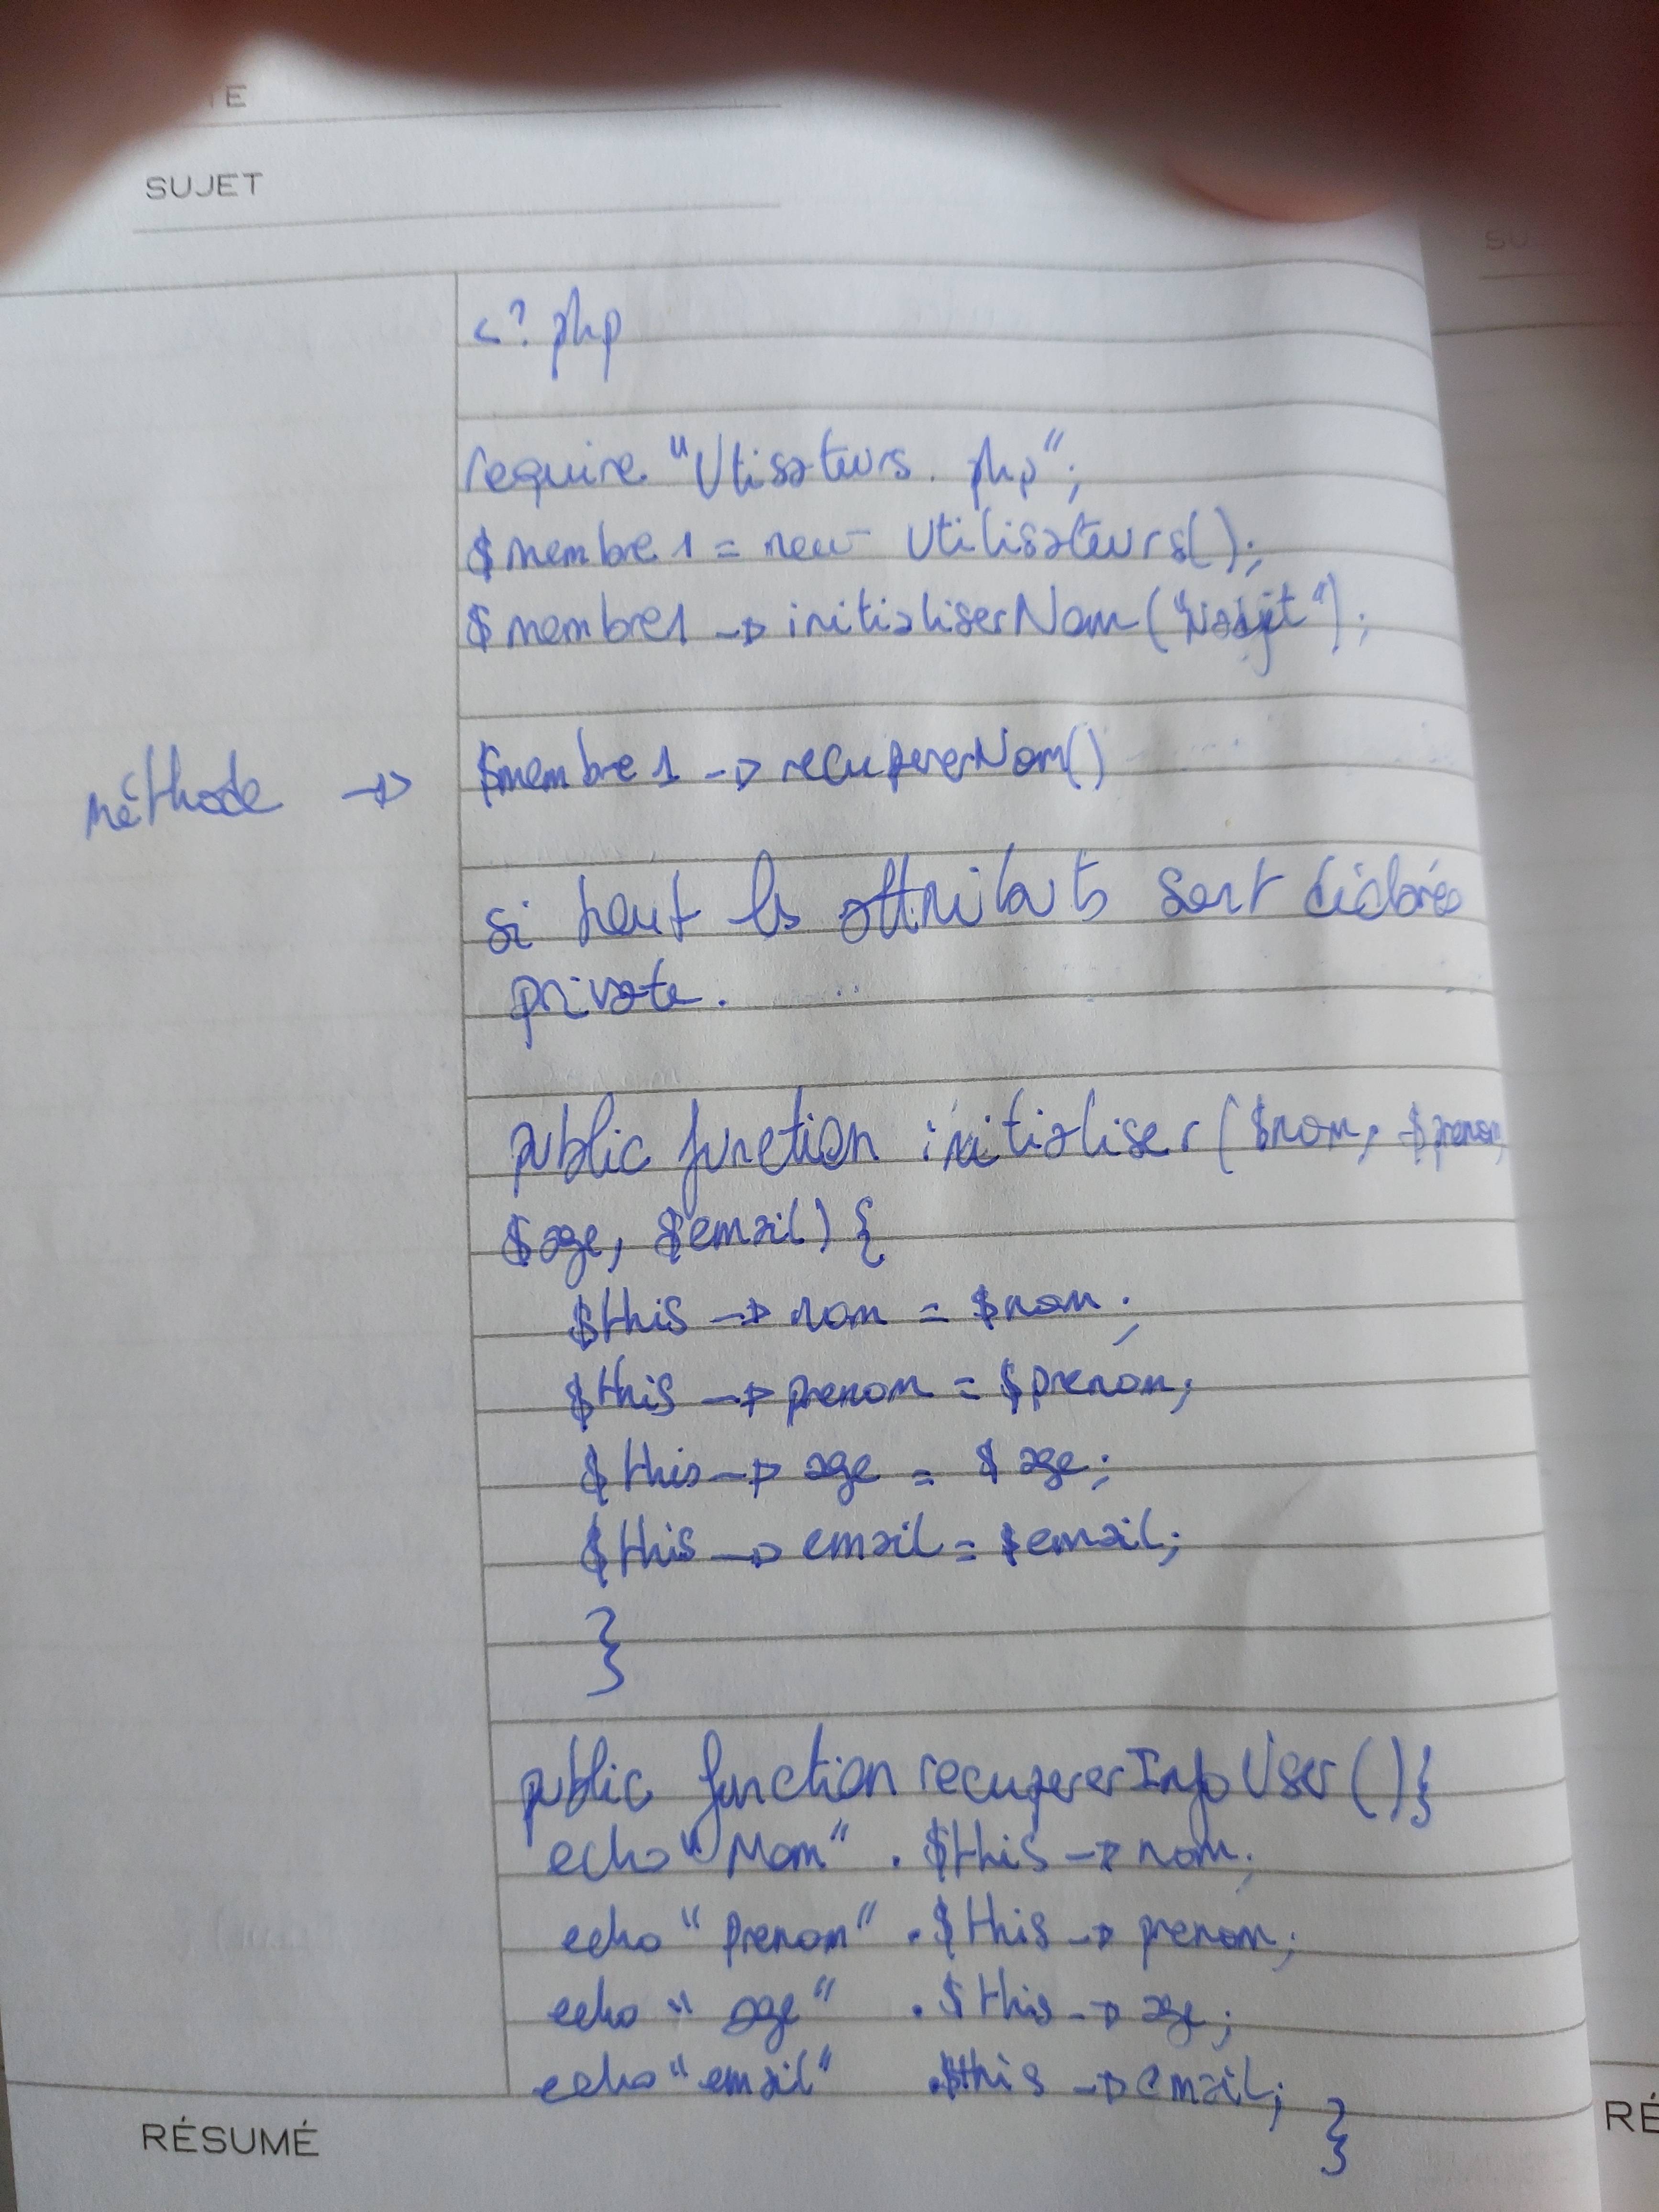 TE
SUJET
<?php
require "Utisateurs.php";
$membre1 = new Utilisateurs();
$membre1 -> initialiserNom(" ");
méthode -> $membre1 -> recupererNom()
si les attributs sont déclarés
private.
public function initialiser($nom, $prenom,
$age, $email) {
$this -> nom = $nom;
$this -> prenom = $prenom;
$this -> age = $age;
$this -> email = $email;
}
public function recupererInfoUser(){
echo "Nom" . $this -> nom;
echo "prenom" . $this -> prenom;
echo "age" . $this -> age;
echo "email" . $this -> email; }
RÉSUMÉ
RÉ